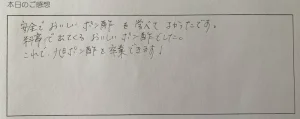 本日のご感想
安全でおいしいポン酢を覚えてよかったです。
料亭で出てくるおいしいポン酢でした。
これで、市販ポン酢を卒業できます!